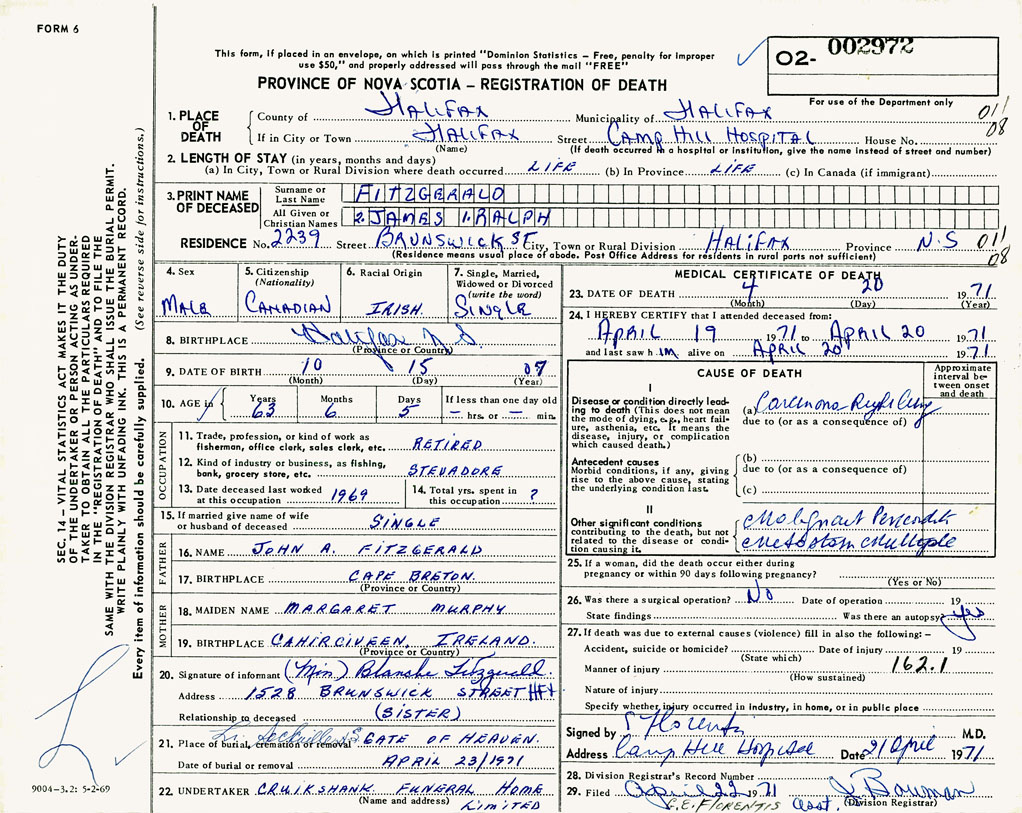 FORM 6
This form, if placed in an envelope, on which is printed "Dominion Statistics – Free, penalty for improper
use $50," and properly addressed will pass through the mail "FREE"
O2- 002972
PROVINCE OF NOVA SCOTIA – REGISTRATION OF DEATH
For use of the Department only
011
08
1. PLACE OF DEATH
County of HALIFAX Municipality of HALIFAX
If in City or Town HALIFAX Street CAMP HILL HOSPITAL House No.
(Name) (If death occurred in a hospital or institution, give the name instead of street and number)
2. LENGTH OF STAY (in years, months and days)
(a) In City, Town or Rural Division where death occurred LIFE (b) In Province LIFE (c) In Canada (if immigrant)
3. PRINT NAME OF DECEASED
Surname or Last Name FITZGERALD
All Given or Christian Names 2. JAMES 1. RALPH
RESIDENCE No. 2239 Street BRUNSWICK ST City, Town or Rural Division HALIFAX Province N.S 011
08
(Residence means usual place of abode. Post Office Address for residents in rural parts not sufficient)
4. Sex
MALE
5. Citizenship
(Nationality)
CANADIAN
6. Racial Origin
IRISH.
7. Single, Married,
Widowed or Divorced
(write the word)
SINGLE
8. BIRTHPLACE Halifax N.S.
(Province or Country)
9. DATE OF BIRTH 10 15 07
(Month) (Day) (Year)
10. AGE in
Years Months Days If less than one day old
63 6 5 – hrs. or – min.
OCCUPATION
11. Trade, profession, or kind of work as
fisherman, office clerk, sales clerk, etc. RETIRED
12. Kind of industry or business, as fishing,
bank, grocery store, etc. STEVADORE
13. Date deceased last worked
at this occupation 1969
14. Total yrs. spent in
this occupation ?
15. If married give name of wife
or husband of deceased SINGLE
FATHER
16. NAME JOHN A. FITZGERALD
17. BIRTHPLACE CAPE BRETON.
(Province or Country)
MOTHER
18. MAIDEN NAME MARGARET MURPHY
19. BIRTHPLACE CAHIRCIVEEN, IRELAND.
(Province or Country)
20. Signature of informant (Miss) Blanche Fitzgerald
Address 1528 BRUNSWICK STREET HFX
Relationship to deceased (SISTER)
21. Place of burial, cremation or removal Lr. Sackville N.S. GATE OF HEAVEN.
Date of burial or removal APRIL 23/1971
22. UNDERTAKER CRUIKSHANK FUNERAL HOME
(Name and address) LIMITED
MEDICAL CERTIFICATE OF DEATH
23. DATE OF DEATH 4 20 1971
(Month) (Day) (Year)
24. I HEREBY CERTIFY that I attended deceased from:
APRIL 19 1971 to APRIL 20 1971
and last saw h im alive on APRIL 20 1971
CAUSE OF DEATH
Approximate
interval be-
tween onset
and death
I
Disease or condition directly lead-
ing to death (This does not mean
the mode of dying, e.g., heart fail-
ure, asthenia, etc. It means the
disease, injury, or complication
which caused death.)
(a) Carcinoma Right Lung
due to (or as a consequence of)
Antecedent causes
Morbid conditions, if any, giving
rise to the above cause, stating
the underlying condition last.
(b)
due to (or as a consequence of)
(c)
II
Other significant conditions
contributing to the death, but not
related to the disease or condi-
tion causing it.
Malignant Pericarditis
Multiple
25. If a woman, did the death occur either during
pregnancy or within 90 days following pregnancy?
(Yes or No)
26. Was there a surgical operation? No Date of operation 19
State findings Was there an autopsy? yes
27. If death was due to external causes (violence) fill in also the following: –
Accident, suicide or homicide? Date of injury 19
(State which)
Manner of injury 162.1
(How sustained)
Nature of injury
Specify whether injury occurred in industry, in home, or in public place
Signed by Florentis M.D.
Address Camp Hill Hospital Date 21 April 1971
28. Division Registrar's Record Number
29. Filed April 22 1971 Bowman
S.E. FLORENTIS Asst. (Division Registrar)
SEC. 14 – VITAL STATISTICS ACT MAKES IT THE DUTY
OF THE UNDERTAKER OR PERSON ACTING AS UNDER-
TAKER TO OBTAIN ALL THE PARTICULARS REQUIRED
IN THE "REGISTRATION OF DEATH" AND TO FILE THE
SAME WITH THE DIVISION REGISTRAR WHO SHALL ISSUE THE BURIAL PERMIT.
WRITE PLAINLY WITH UNFADING INK. THIS IS A PERMANENT RECORD.
Every item of information should be carefully supplied. (See reverse side for instructions.)
9004–3.2: 5-2-69